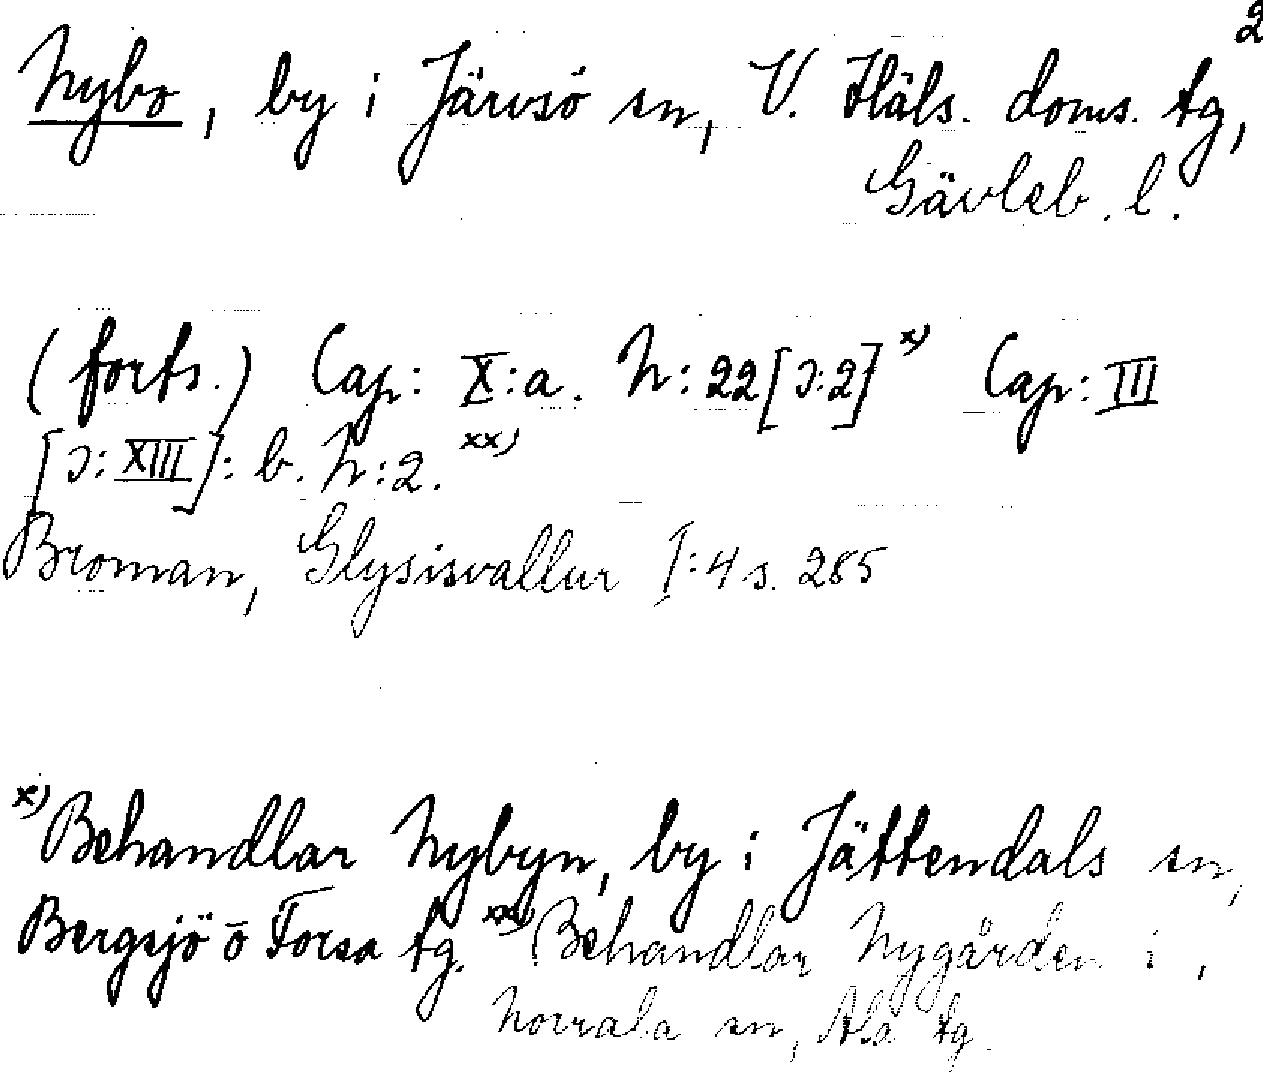 2
Nybo, by i Järvsö sn, V. Häls. doms. tg,
Gävleb. l.
(forts.) Cap: X:a. N:22[ɔ:2]x) Cap: III
[ɔ:XIII]: b. N:2. xx)
Broman, Glysisvallur I:4 s. 285
x) Behandlar Nybyn, by i Jättendals sn,
Bergsjö o Forsa tg. xx) Behandlar Nygården i,
Norrala sn, Ala tg